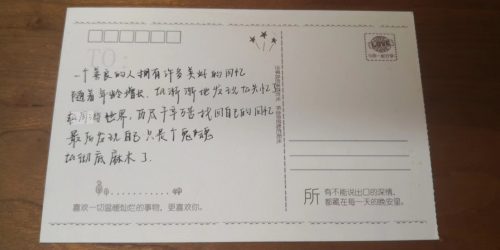 TO:
一个善良的人拥有许多美好的回忆
随着年龄增长，他渐渐地发现他失忆
世界，历尽千辛万苦找回自己的回忆
最后发现自己只是个鬼魂
他彻底麻木了
喜欢一切温暖灿烂的事物，更喜欢你。
LOVE
所有不能说出口的深情，
都藏在每一天的晚安里。